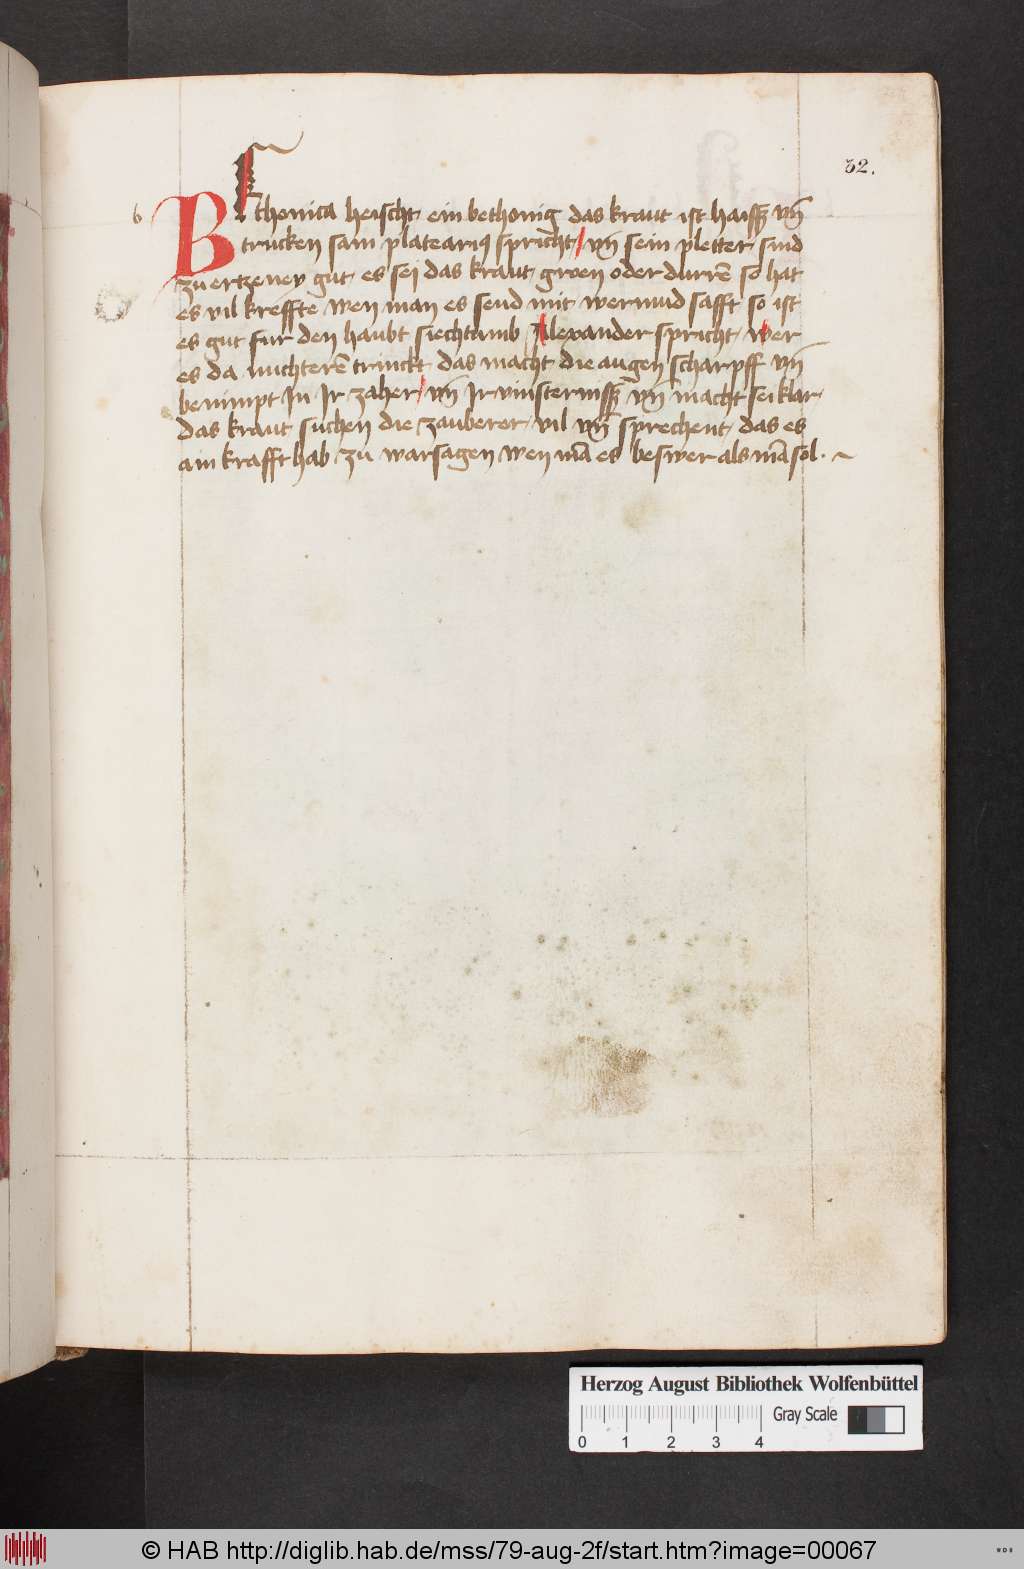 32.
b
Bethonica heischt ein bethonig das kraut ist haiss vn̄
trucken sam platearius spricht vn̄ sein pletter sind
zu ertzeney gut es sei das kraut groen oder durrē so hat
es vil kreffte wen man es seud mit wermud safft so ist
es gut fur den haubt siechtumb Alexander spricht wer
es da nuchterē trinckt das macht die augen scharpff vn̄
benimpt In Ir zaher vn̄ Ir vinsterniss vn̄ macht sei klar
das kraut suchen die zauberer vil vn̄ sprechent das es
ain krafft hab zu warsagen wen mā es beswer als mā sol · ~
Herzog August Bibliothek Wolfenbüttel
Gray Scale
0 1 2 3 4
© HAB http://diglib.hab.de/mss/79-aug-2f/start.htm?image=00067